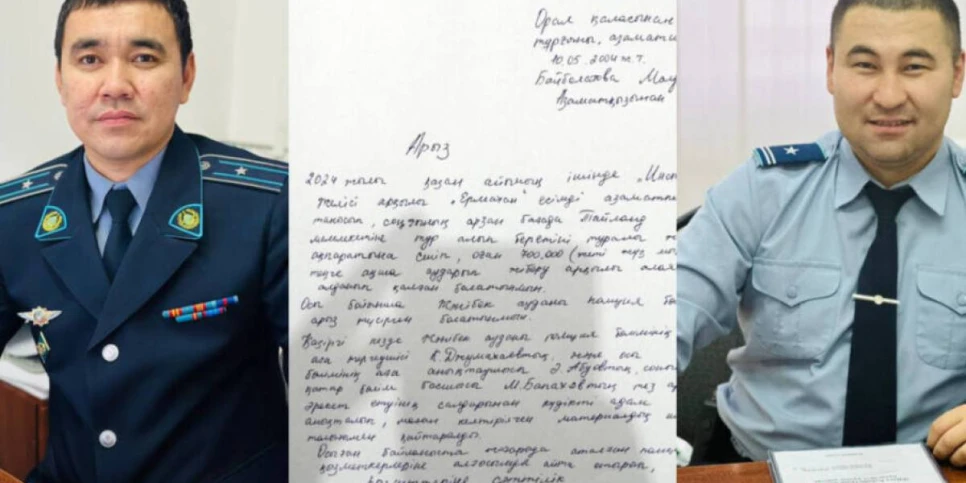 Орал қаласының
тұрғыны, азамат
10.05.2004 ж.т.
Байболатова
Азаматқызынан
Арыз
2024 жылы қазан айының ішінде „Инст
желісі арқылы „Ермахан" есімді азамат
танысып, арзан бағада Тайланд
мемлекетіне тур алып беретіні туралы
ақпаратына сеніп, оған 700.000 (жеті жүз
теңге ақша аударып жіберу арқылы
алданып қалған болатынмын.
Осы бойынша Жәнібек ауданы полиция
арыз түсірген болатынмын.
Қазіргі кезде Жәнібек ауданы полиция бөлімінің
аға тергеушісі К. және осы
бөлімнің аға анықтаушысы Ә.
қатар бөлім басшысы М. тез
әрекет етуінің салдарынан күдікті адам
анықталып, маған келтірілген материалдық
толығымен қайтарылды.
Осыған байланысты жоғарыда аталған
қызметкерлеріне алғысымды айта отырып,
сәттілік